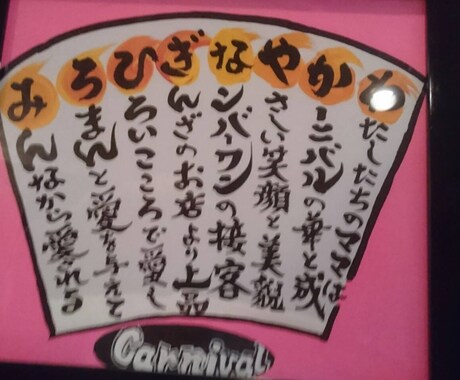 わたしたちのママは
かーニバルの華と成
やさしい笑顔と美貌
なンバーワンの接客
ぎんざのお店より上品
ひろいこころで愛し
ろまんと愛を与えて
みんなから愛される
Carnival